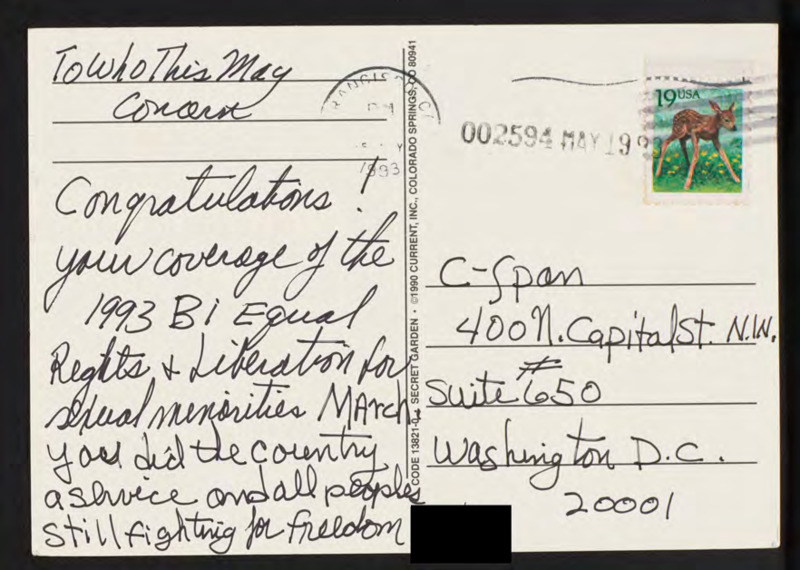 To Who This May
Concern
Congratulations!
your coverage of the
1993 Bi Equal
Rights & Liberation for
sexual minorities March
you did the country
a service and all peoples
still fighting for freedom
CODE 13821-0 SECRET GARDEN • ©1990 CURRENT, INC., COLORADO SPRINGS, CO 80941
1993
002594 MAY 199
19 USA
C-Span
400 N. Capital St. N.W.
Suite # 650
Washington D.C.
20001